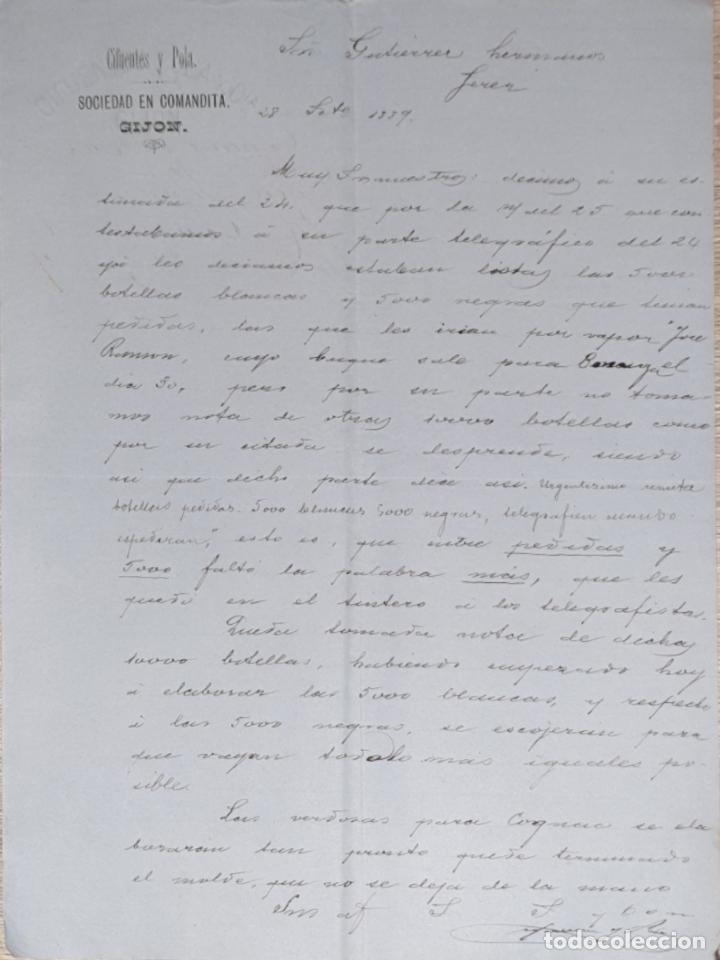 Cifuentes y Pola.
SOCIEDAD EN COMANDITA.
GIJON.
Sres Gutierrez hermanos
Jerez
28 Sete 1889.
Muy Sres nuestros: decimos á su es-
timada del 24. que por la n/ del 25 que con
testabamos á su parte telegráfico del 24
ya les deciamos estaban listas las 5000
botellas blancas y 5000 negras que tenian
pedidas, las que les irian por vapor "José
Ramon, cuyo buque sale para el
dia 30, pero por su parte no toma-
mos nota de otras 10000 botellas como
por su citada se desprende, siendo
asi que dicho parte dice asi. Urgentisimo remita
botellas pedidas. 5000 blancas 5000 negras, telegrafien cuando
espediran", esto es, que entre pedidas y
5000 faltó la palabra más, que les
quedó en el tintero á los telegrafistas.
Queda tomada nota de dichas
10000 botellas, habiendo empezado hoy
á elaborar las 5000 blancas, y respecto
á las 5000 negras, se escojeran para
que vayan todo lo más iguales po-
sible.
Las verdosas para Cognac se ela
boraran tan pronto quede terminado
el molde, que no se deja de la mano
todocoleccion
todocoleccion.net